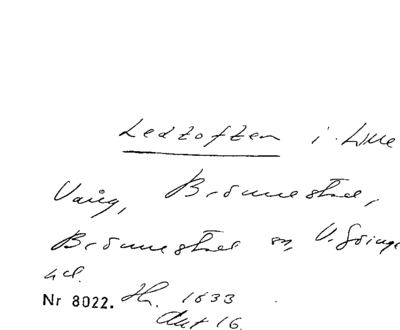 Ledtoften i Lille
Vång, Brönnestad,
Brönnestad sn, V. Göinge
hd.
Nr 8022. Hr. 1633
Akt 16.